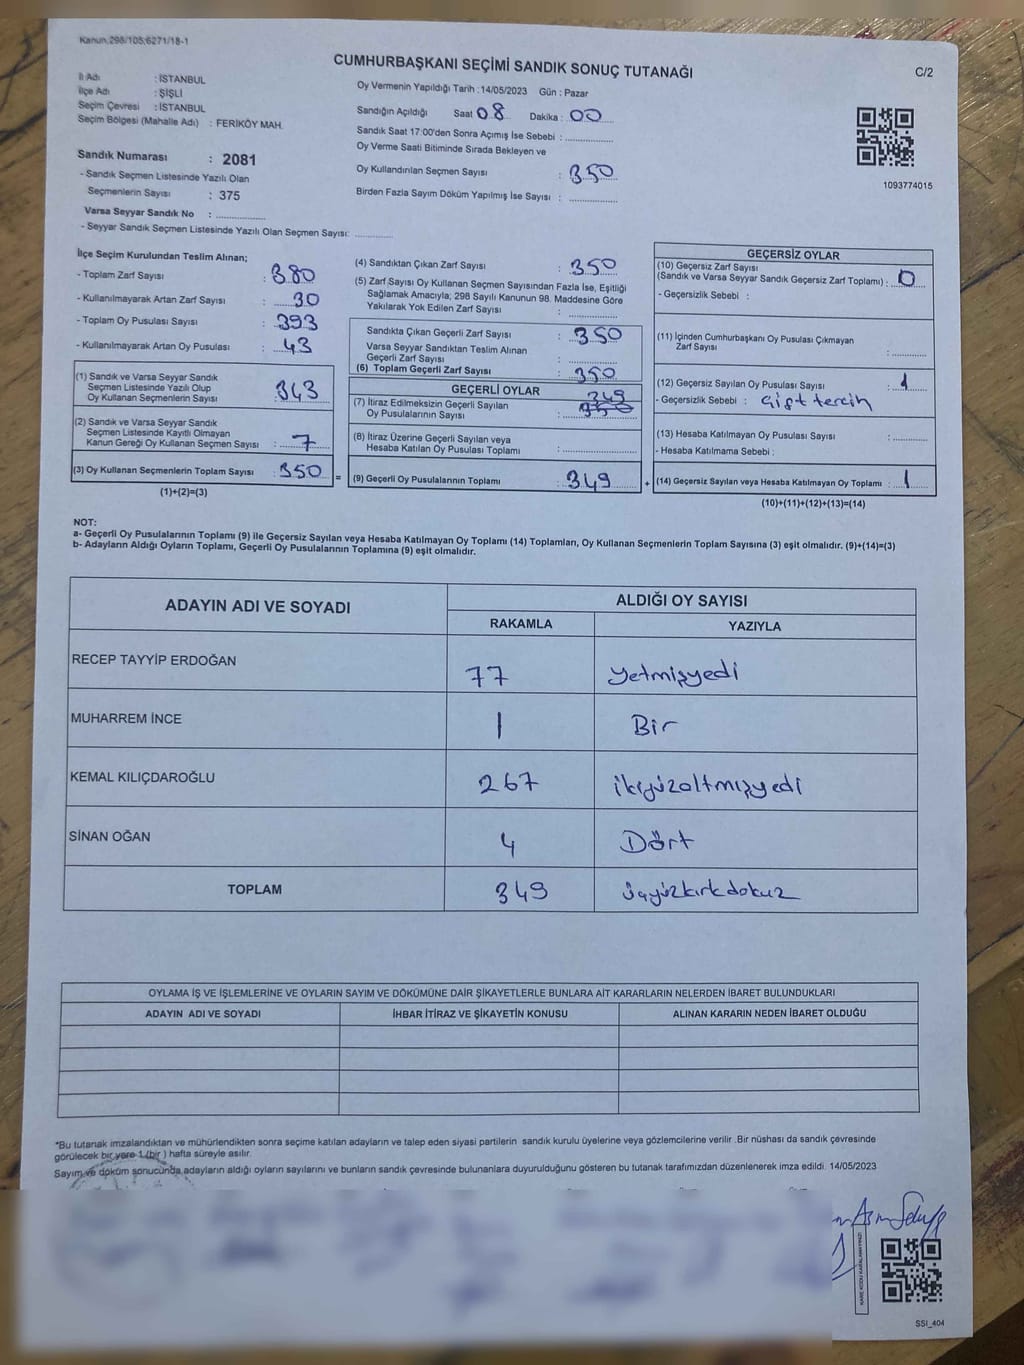 Kanun.298/105;6271/18-1
CUMHURBAŞKANI SEÇİMİ SANDIK SONUÇ TUTANAĞI
C/2
İl Adı : İSTANBUL
İlçe Adı : ŞİŞLİ
Seçim Çevresi : İSTANBUL
Seçim Bölgesi (Mahalle Adı) : FERİKÖY MAH.
Sandık Numarası : 2081
- Sandık Seçmen Listesinde Yazılı Olan
Seçmenlerin Sayısı : 375
Varsa Seyyar Sandık No : ................
- Seyyar Sandık Seçmen Listesinde Yazılı Olan Seçmen Sayısı: ............
Oy Vermenin Yapıldığı Tarih : 14/05/2023 Gün : Pazar
Sandığın Açıldığı Saat 08 Dakika : 00
Sandık Saat 17:00'den Sonra Açımış İse Sebebi : ................
Oy Verme Saati Bitiminde Sırada Bekleyen ve
Oy Kullandırılan Seçmen Sayısı : 350
Birden Fazla Sayım Döküm Yapılmış İse Sayısı : ................
1093774015
İlçe Seçim Kurulundan Teslim Alınan;
- Toplam Zarf Sayısı : 380
- Kullanılmayarak Artan Zarf Sayısı : 30
- Toplam Oy Pusulası Sayısı : 393
- Kullanılmayarak Artan Oy Pusulası : 43
(1) Sandık ve Varsa Seyyar Sandık
Seçmen Listesinde Yazılı Olup
Oy Kullanan Seçmenlerin Sayısı : 343
(2) Sandık ve Varsa Seyyar Sandık
Seçmen Listesinde Kayıtlı Olmayan
Kanun Gereği Oy Kullanan Seçmen Sayısı : 7
(3) Oy Kullanan Seçmenlerin Toplam Sayısı : 350 =
(1)+(2)=(3)
(4) Sandıktan Çıkan Zarf Sayısı : 350
(5) Zarf Sayısı Oy Kullanan Seçmen Sayısından Fazla İse, Eşitliği
Sağlamak Amacıyla; 298 Sayılı Kanunun 98. Maddesine Göre
Yakılarak Yok Edilen Zarf Sayısı : ................
Sandıkta Çıkan Geçerli Zarf Sayısı : 350
Varsa Seyyar Sandıktan Teslim Alınan
Geçerli Zarf Sayısı : ................
(6) Toplam Geçerli Zarf Sayısı : 350
GEÇERLİ OYLAR
(7) İtiraz Edilmeksizin Geçerli Sayılan 349
Oy Pusulalarının Sayısı : 350
(8) İtiraz Üzerine Geçerli Sayılan veya
Hesaba Katılan Oy Pusulası Toplamı : ................
(9) Geçerli Oy Pusulalarının Toplamı : 349 +
GEÇERSİZ OYLAR
(10) Geçersiz Zarf Sayısı
(Sandık ve Varsa Seyyar Sandık Geçersiz Zarf Toplamı) : 0
- Geçersizlik Sebebi :
(11) İçinden Cumhurbaşkanı Oy Pusulası Çıkmayan
Zarf Sayısı : ............
(12) Geçersiz Sayılan Oy Pusulası Sayısı : 1
- Geçersizlik Sebebi : Çift tercih
(13) Hesaba Katılmayan Oy Pusulası Sayısı : ............
- Hesaba Katılmama Sebebi :
(14) Geçersiz Sayılan veya Hesaba Katılmayan Oy Toplamı : 1
(10)+(11)+(12)+(13)=(14)
NOT:
a- Geçerli Oy Pusulalarının Toplamı (9) ile Geçersiz Sayılan veya Hesaba Katılmayan Oy Toplamı (14) Toplamları, Oy Kullanan Seçmenlerin Toplam Sayısına (3) eşit olmalıdır. (9)+(14)=(3)
b- Adayların Aldığı Oyların Toplamı, Geçerli Oy Pusulalarının Toplamına (9) eşit olmalıdır.
ADAYIN ADI VE SOYADI
ALDIĞI OY SAYISI
RAKAMLA YAZIYLA
RECEP TAYYİP ERDOĞAN 77 yetmişyedi
MUHARREM İNCE 1 Bir
KEMAL KILIÇDAROĞLU 267 ikiyüzaltmışyedi
SİNAN OĞAN 4 Dört
TOPLAM 349 üçyüzkırkdokuz
OYLAMA İŞ VE İŞLEMLERİNE VE OYLARIN SAYIM VE DÖKÜMÜNE DAİR ŞİKAYETLERLE BUNLARA AİT KARARLARIN NELERDEN İBARET BULUNDUKLARI
ADAYIN ADI VE SOYADI İHBAR İTİRAZ VE ŞİKAYETİN KONUSU ALINAN KARARIN NEDEN İBARET OLDUĞU
*Bu tutanak imzalandıktan ve mühürlendikten sonra seçime katılan adayların ve talep eden siyasi partilerin sandık kurulu üyelerine veya gözlemcilerine verilir .Bir nüshası da sandık çevresinde
görülecek bir yere 1 (bir ) hafta süreyle asılır.
Sayım ve döküm sonucunda adayların aldığı oyların sayılarını ve bunların sandık çevresinde bulunanlara duyurulduğunu gösteren bu tutanak tarafımızdan düzenlenerek imza edildi. 14/05/2023
KARE KODU KARALAMAYINIZ!
SSI_404